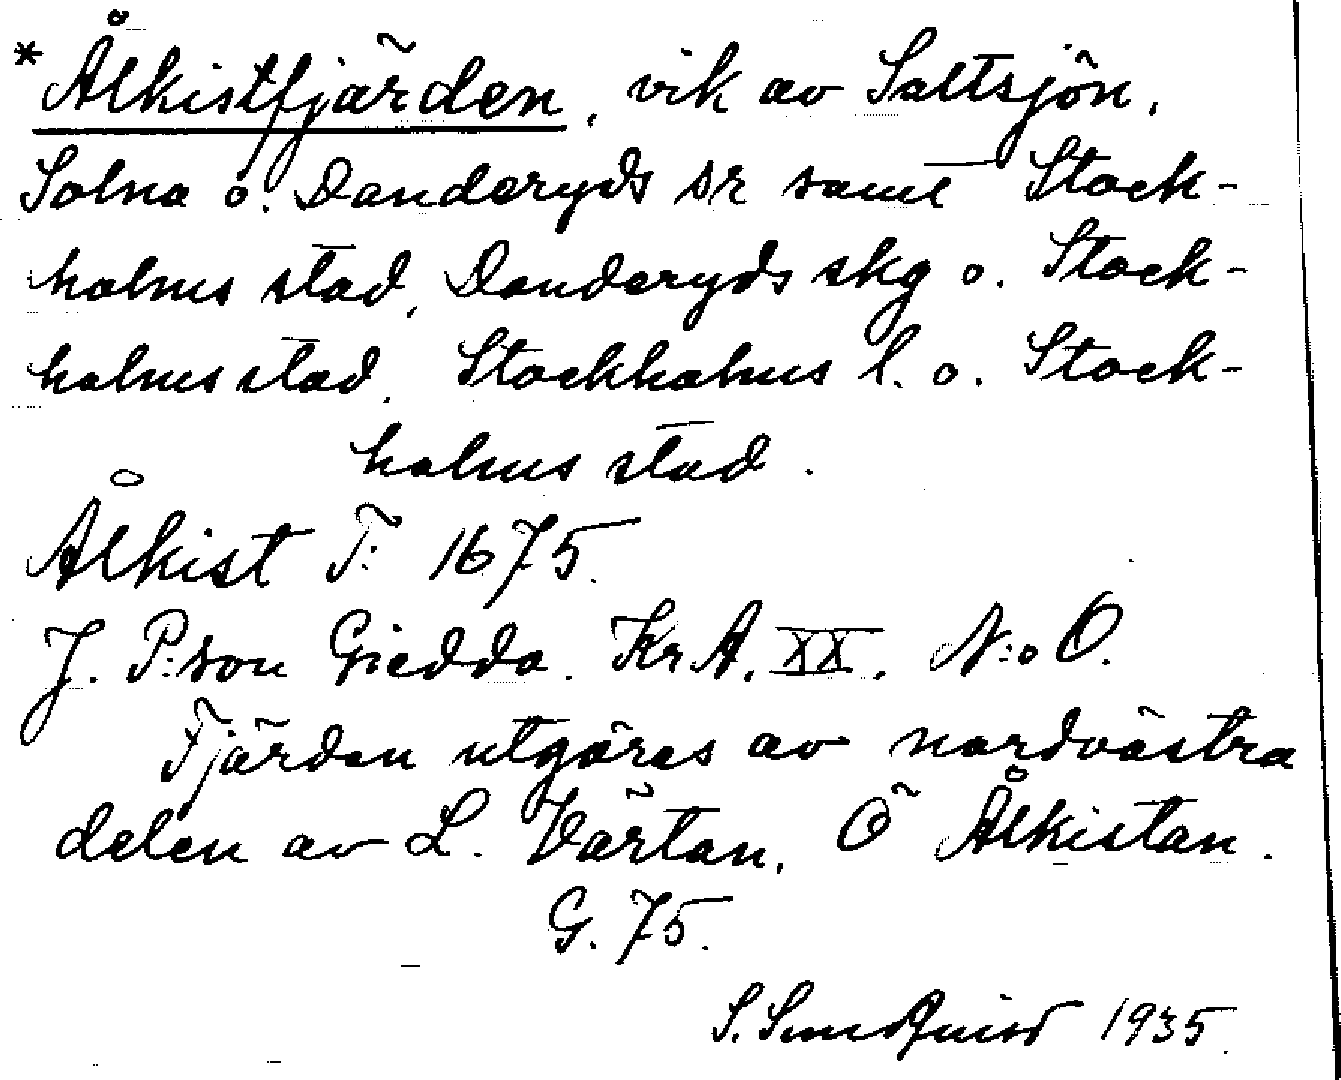 *Ålkistfjärden, vik av Saltsjön,
Solna o. Danderyds sr samt Stock-
holms stad, Danderyds skg o. Stock-
holms stad, Stockholms l. o. Stock-
holms stad.
Ålkist F: 1675.
J. P:son Giedda. KrA. XX. N:o O.
Fjärden utgöres av nordvästra
delen av L. Värtan, Ö Ålkistan.
G. 75.
S. Sundquist 1935.